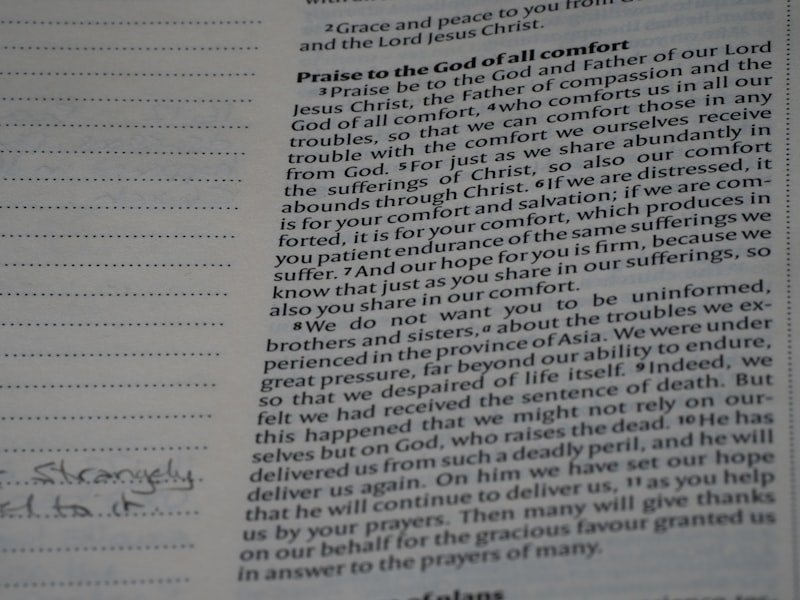 2 Grace and peace to you from God
and the Lord Jesus Christ.
Praise to the God of all comfort
3 Praise be to the God and Father of our Lord
Jesus Christ, the Father of compassion and the
God of all comfort, 4 who comforts us in all our
troubles, so that we can comfort those in any
trouble with the comfort we ourselves receive
from God. 5 For just as we share abundantly in
the sufferings of Christ, so also our comfort
abounds through Christ. 6 If we are distressed, it
is for your comfort and salvation; if we are com-
forted, it is for your comfort, which produces in
you patient endurance of the same sufferings we
suffer. 7 And our hope for you is firm, because we
know that just as you share in our sufferings, so
also you share in our comfort.
8 We do not want you to be uninformed,
brothers and sisters, a about the troubles we ex-
perienced in the province of Asia. We were under
great pressure, far beyond our ability to endure,
so that we despaired of life itself. 9 Indeed, we
felt we had received the sentence of death. But
this happened that we might not rely on our-
selves but on God, who raises the dead. 10 He has
delivered us from such a deadly peril, and he will
deliver us again. On him we have set our hope
that he will continue to deliver us, 11 as you help
us by your prayers. Then many will give thanks
on our behalf for the gracious favour granted us
in answer to the prayers of many.
of plans
Strangely
to it